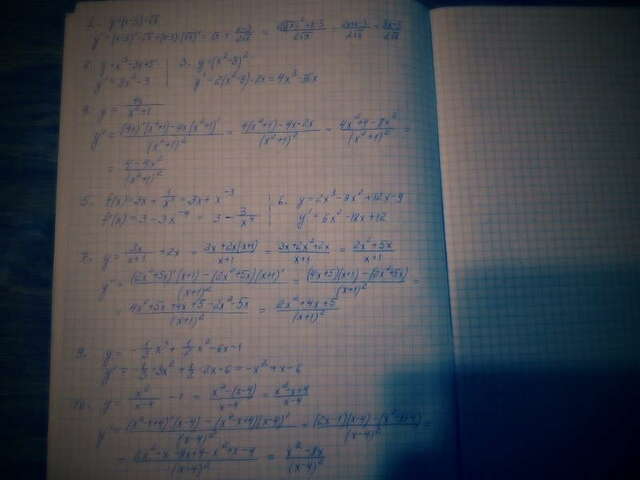 y = (x-3)·√x
y' = (x-3)'·√x + (x-3)·(√x)' = √x + (x-3)/(2√x) =
y = x³-3x+5 | 3. y = (x²-9)²
y' = 3x²-3 | y' = 2(x²-9)·2x = 4x³-36x
4. y = 4x/(x²+1)
y' = ((4x)'(x²+1)-4x(x²+1)')/(x²+1)² = (4(x²+1)-4x·2x)/(x²+1)² = (4x²+4-8x²)/(x²+1)² =
= (4-4x²)/(x²+1)²
5. f(x) = 3x + 1/x³ = 3x + x⁻³ | 6. y = 2x³-9x²+12x-9
f'(x) = 3-3x⁻⁴ = 3 - 3/x⁴ | y' = 6x²-18x+12
7. y = 3x/(x+1) + 2x = (3x+2x(x+1))/(x+1) = (3x+2x²+2x)/(x+1) = (2x²+5x)/(x+1)
y' = ((2x²+5x)'(x+1) - (2x²+5x)(x+1)')/(x+1)² = ((4x+5)(x+1) - (2x²+5x))/(x+1)² =
= (4x²+5x+4x+5-2x²-5x)/(x+1)² = (2x²+4x+5)/(x+1)²
9. y = -1/3 x³ + 1/2 x² - 6x - 1
y' = -1/3·3x² + 1/2·2x - 6 = -x² + x - 6
10. y = x²/(x-4) - 1 = (x²-(x-4))/(x-4) = (x²-x+4)/(x-4)
y' = ((x²-x+4)'(x-4) - (x²-x+4)(x-4)')/(x-4)² = ((2x-1)(x-4)-(x²-x+4))/(x-4)² =
= (x²-8x)/(x-4)²